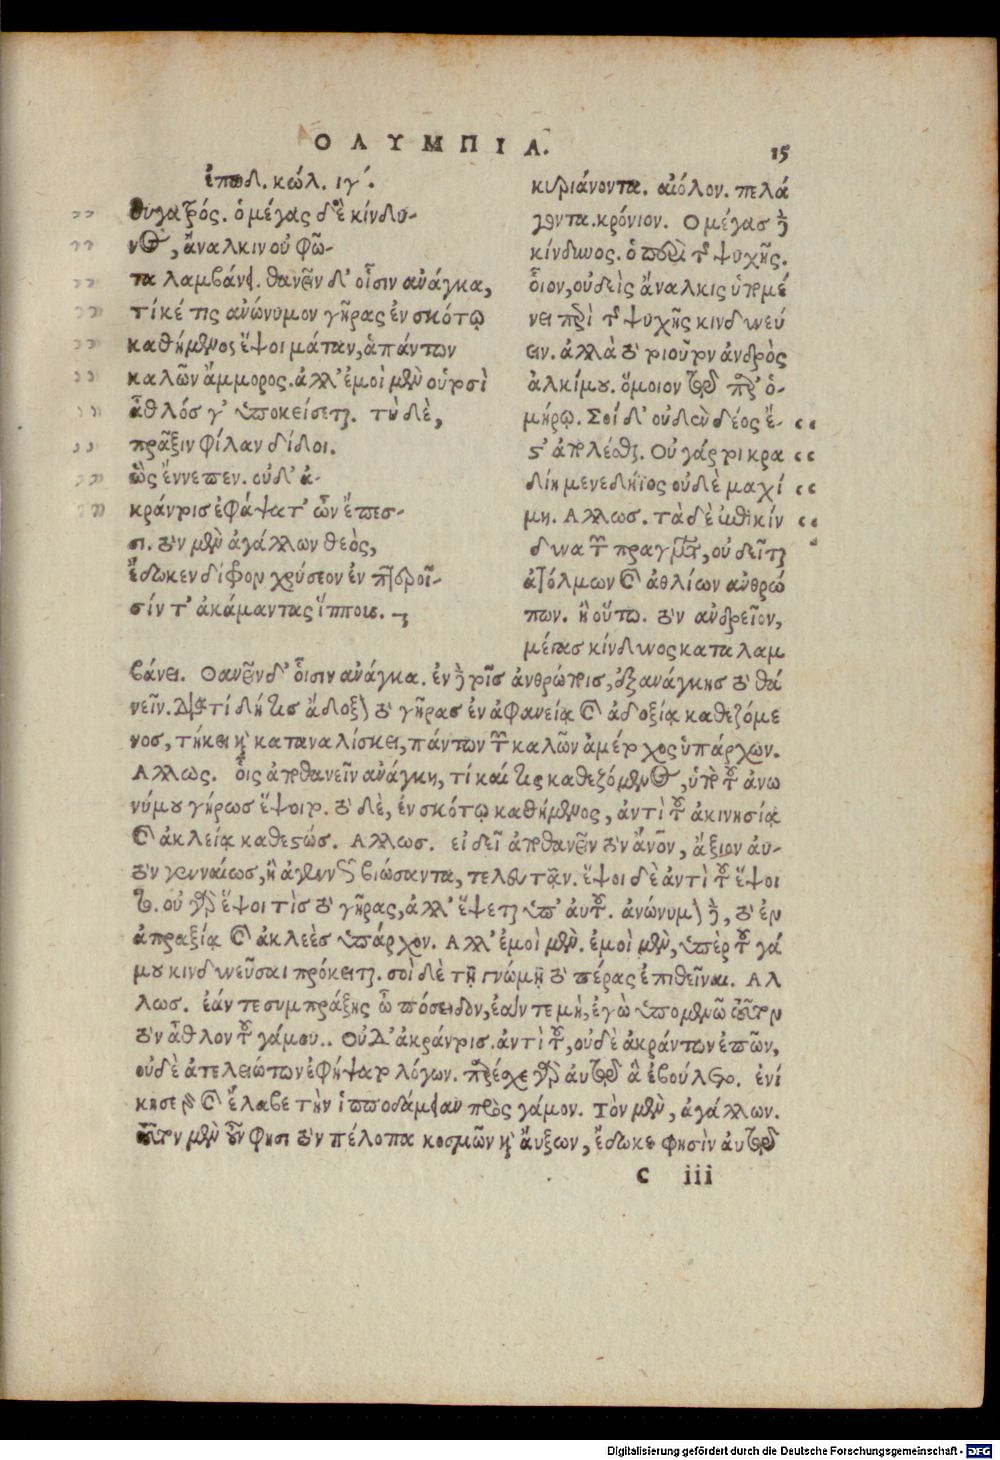 ΟΛΥΜΠΙΑ.
15
ἐπωδ. κώλ. ιγ´.
θυγατρός. ὁ μέγας δὲ κίνδυ-
νος, ἄναλκιν οὐ φῶ-
τα λαμβάνει. θανεῖν δ' οἷσιν ἀνάγκα,
τί κέ τις ἀνώνυμον γῆρας ἐν σκότῳ
καθήμενος ἕψοι μάταν, ἁπάντων
καλῶν ἄμμορος. ἀλλ' ἐμοὶ μὲν οὗτοσὶ
ἆθλός γ' ὑποκείσεται. τὺ δὲ,
πρᾶξιν φίλαν δίδοι.
ὣς ἔννεπεν. οὐδ' ἀ-
κράντοις ἐφάψατ' ὦν ἔπεσ-
σι. τὸν μὲν ἀγάλλων θεὸς,
ἔδωκεν δίφρον χρύσεον ἐν πτεροῖ-
σίν τ' ἀκάμαντας ἵππους.
κυριάνοντα. αἰόλον. πελά
γοντα. κρόνιον. Ο μέγας
κίνδυνος. ὁ περὶ τῆς ψυχῆς.
οἷον, οὐδεὶς ἄναλκις ὑπομέ
νει περὶ τῆς ψυχῆς κινδυνεύ
ειν. ἀλλὰ τοιοῦτον ἀνδρὸς
ἀλκίμου. ὅμοιον τῷ παρ' ὁ-
μήρῳ. Σοὶ δ' οὐδὲν δέος ἔ-
στ' ἀπολέσθαι. Οὐ γάρ τοι κρα
δίη μενεδήϊος οὐδὲ μαχί
μη. Αλλως. τὰ δὲ ἐπικίν
δυνα τῶν πραγμάτων, οὐ δεῖται
ἀτόλμων καὶ ἀθλίων ἀνθρώ
πων. ἢ οὕτω. τὸν ἀνδρεῖον,
μέγας κίνδυνος καταλαμ
βάνει. Θανεῖν δ' οἷσιν ἀνάγκα. ἐν τοῖς ἀνθρώποις, ἐξ ανάγκης τὸ θα
νεῖν. διὰ τί δή τις ἄδοξον τὸ γῆρας ἐν ἀφανείᾳ καὶ ἀδοξίᾳ καθεζόμε
νος, τήκει καὶ καταναλίσκει, πάντων τῶν καλῶν ἀμέτοχος ὑπάρχων.
Αλλως. οἷς ἀποθανεῖν ανάγκη, τί καί τις καθεζόμενος, ὑπὸ τοῦ ἀνω
νύμου γήρως ἕψοιτο. τὸ δὲ, ἐν σκότῳ καθήμενος, ἀντὶ τοῦ ἀκινησίᾳ
καὶ ἀκλείᾳ καθεστώς. Αλλως. εἰ δεῖ ἀποθανεῖν τὸν ἄνθρωπον, ἄξιον αὐ-
τὸν γενναίως, ἢ ἀγεννῶς βιώσαντα, τελευτᾶν. ἕψοι δὲ ἀντὶ τοῦ ἕψοι
το. οὐ γὰρ ἕψοι τὶς τὸ γῆρας, ἀλλ' ἕψεται ὑπ' αὐτοῦ. ἀνώνυμον, τὸ ἐν
ἀπραξίᾳ καὶ ἀκλεὲς ὑπάρχον. Αλλ' ἐμοὶ μὲν. ἐμοὶ μὲν, ὑπὲρ τοῦ γά
μου κινδυνεῦσαι πρόκειται. σοὶ δὲ τῇ γνώμῃ τὸ πέρας ἐπιθεῖναι. Αλ
λως. ἐάν τε συμπράξῃς ὦ πόσειδον, ἐάν τε μὴ, ἐγὼ ὑπομενῶ τοῦτον
τὸν ἆθλον τοῦ γάμου.. Οὐδ' ἀκράντοις. ἀντὶ τοῦ, οὐδὲ ἀκράντων ἐπῶν,
οὐδὲ ἀτελειώτων ἐφήψατο λόγων. παρέσχε γὰρ αὐτῷ ἃ ἐβούλετο. ἐνί
κησε γὰρ καὶ ἔλαβε τὴν ἱπποδάμειαν πρὸς γάμον. Τὸν μὲν, ἀγάλλων.
τοῦτον μὲν οὖν φησι τὸν πέλοπα κοσμῶν καὶ ἄυξων, ἔδωκε φησὶν αὐτῷ
C iii
Digitalisierung gefördert durch die Deutsche Forschungsgemeinschaft - DFG